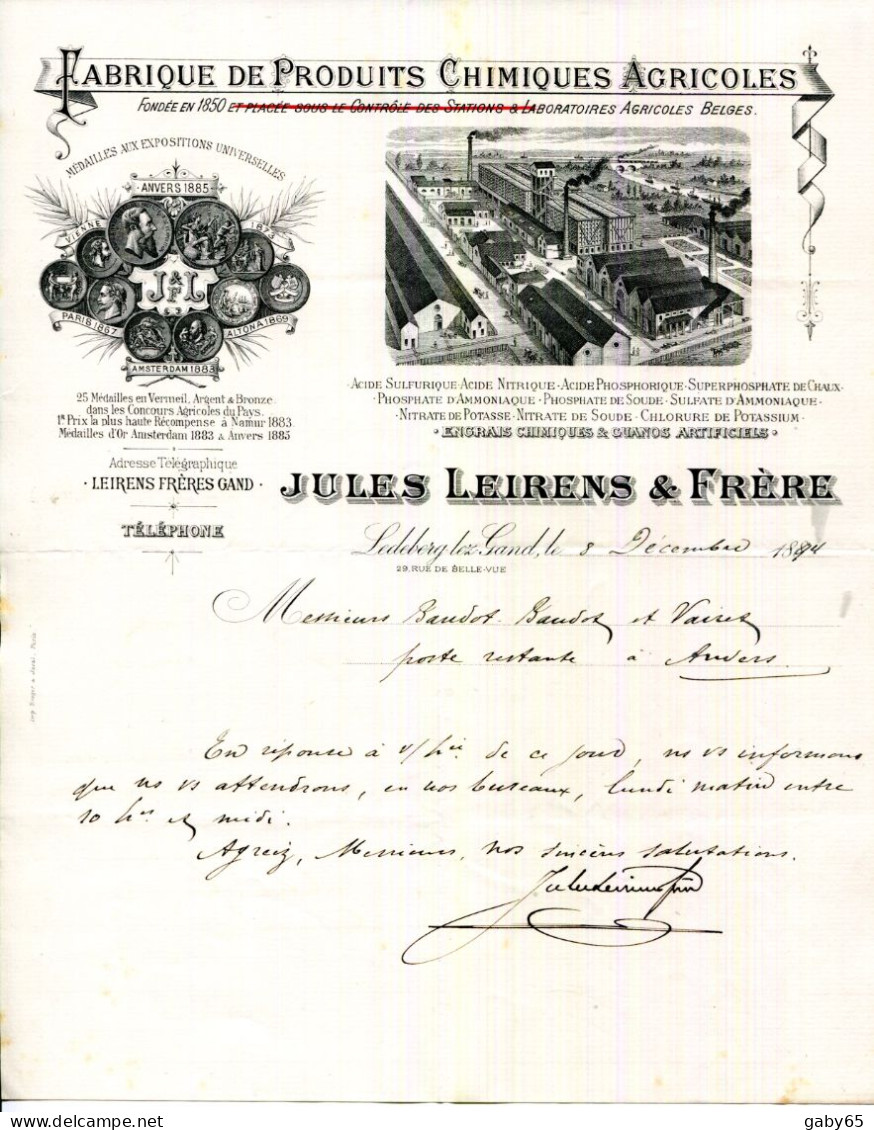 FABRIQUE DE PRODUITS CHIMIQUES AGRICOLES
FONDÉE EN 1850 ET PLACÉE SOUS LE CONTRÔLE DES STATIONS & LABORATOIRES AGRICOLES BELGES.
MÉDAILLES AUX EXPOSITIONS UNIVERSELLES
ANVERS 1885
VIENNE 1873
J&L
F
PARIS 1867
ALTONA 1869
AMSTERDAM 1883
25 Médailles en Vermeil, Argent & Bronze
dans les Concours Agricoles du Pays.
1er Prix la plus haute Récompense à Namur 1883
Médailles d'Or Amsterdam 1883 & Anvers 1885
Adresse Télégraphique
LEIRENS FRÈRES GAND
TÉLÉPHONE
ACIDE SULFURIQUE·ACIDE NITRIQUE·ACIDE PHOSPHORIQUE·SUPERPHOSPHATE DE CHAUX·
·PHOSPHATE D'AMMONIAQUE·PHOSPHATE DE SOUDE·SULFATE D'AMMONIAQUE·
·NITRATE DE POTASSE·NITRATE DE SOUDE·CHLORURE DE POTASSIUM·
·ENGRAIS CHIMIQUES & GUANOS ARTIFICIELS·
JULES LEIRENS & FRÈRE
Ledeberg lez Gand, le 8 Décembre 1894
29, RUE DE BELLE-VUE
Messieurs Baudot et
poste restante à Anvers.
En réponse à v/ de ce jour, ns vs informons
que ns vs attendrons, en nos bureaux, lundi matin entre
10 hes et midi.
Agréez, Messieurs, nos sincères salutations.
Jules Leirens frère
gaby65